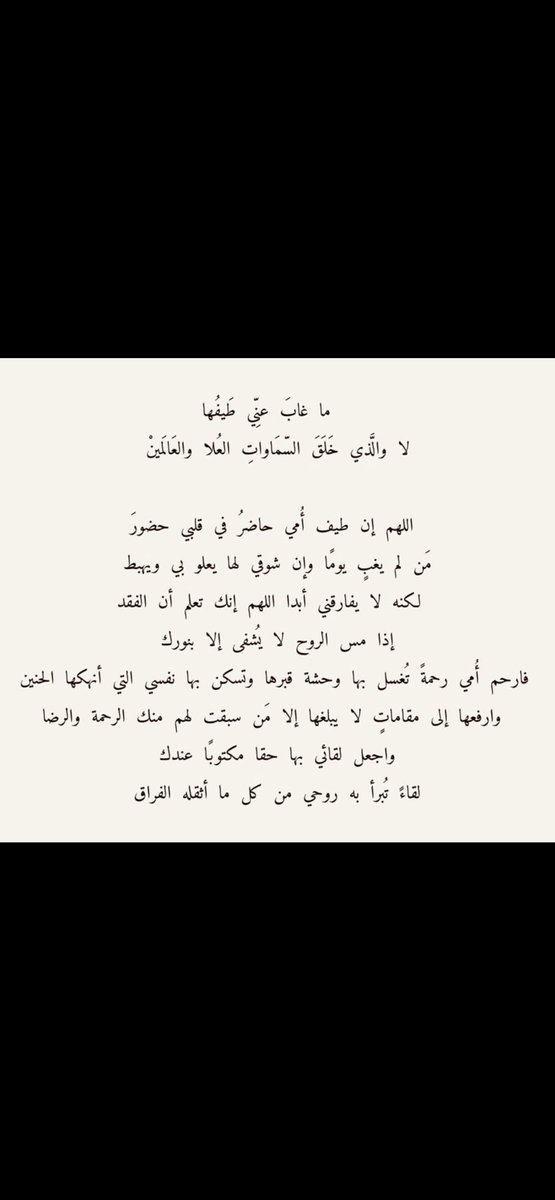 ما غابَ عنِّي طَيفُها
لا والَّذي خَلَقَ السّمَاواتِ العُلا والعَالَمينْ
اللهم إن طيف أُمي حاضرُ في قلبي حضورَ
مَن لم يغبٍ يومًا وإن شوقي لها يعلو بي ويهبط
لكنه لا يفارقني أبدا اللهم إنك تعلم أن الفقد
إذا مس الروح لا يُشفى إلا بنورك
فارحم أُمي رحمةً تُغسل بها وحشة قبرها وتسكن بها نفسي التي أنهكها الحنين
وارفعها إلى مقاماتٍ لا يبلغها إلا مَن سبقت لهم منك الرحمة والرضا
واجعل لقائي بها حقا مكتوبًا عندك
لقاءً تُبرأ به روحي من كل ما أثقله الفراق